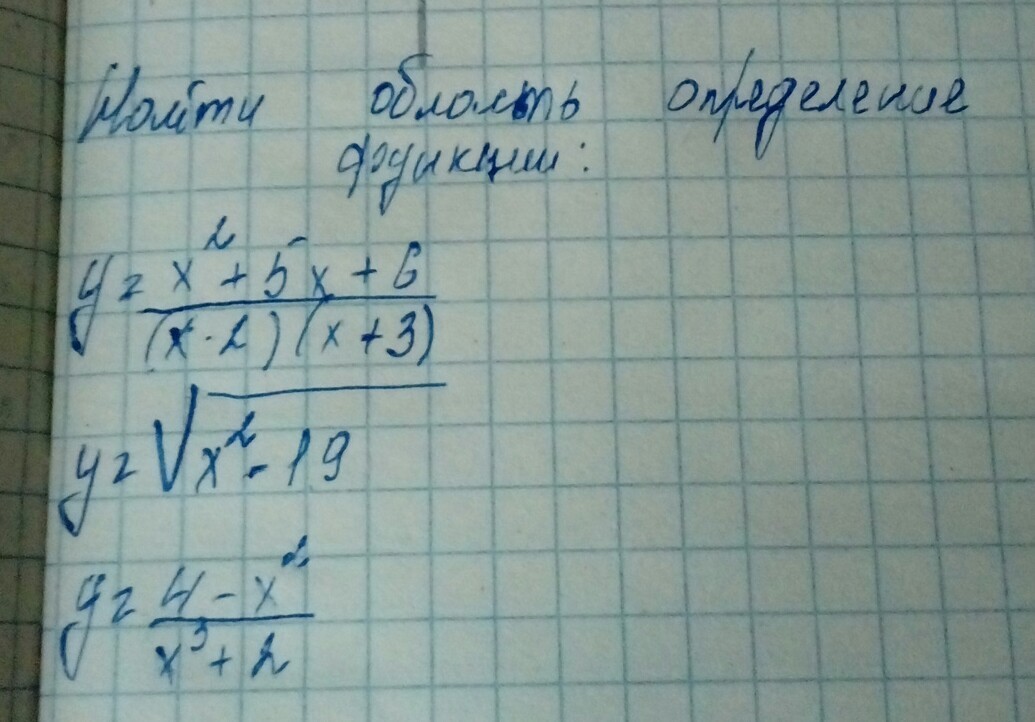 Найти область определение
функции:
y = x² + 5x + 6 / (x - 2)(x + 3)
y = √x² - 19
y = 4 - x² / x³ + 2